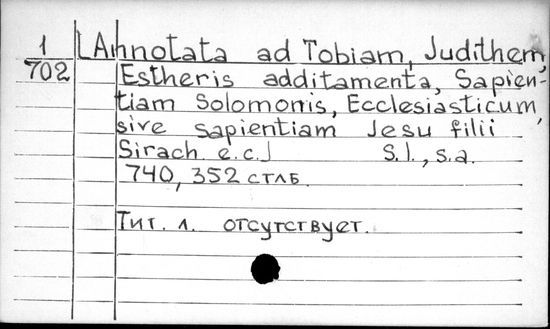 1 [Annotata ad Tobiam, Judithem,
702 Estheris additamenta, Sapien-
tiam Solomonis, Ecclesiasticum,
sive sapientiam Jesu filii
Sirach e.c.] S.l., s.a.
740, 352 стлб.
Тит. л. отсутствует.